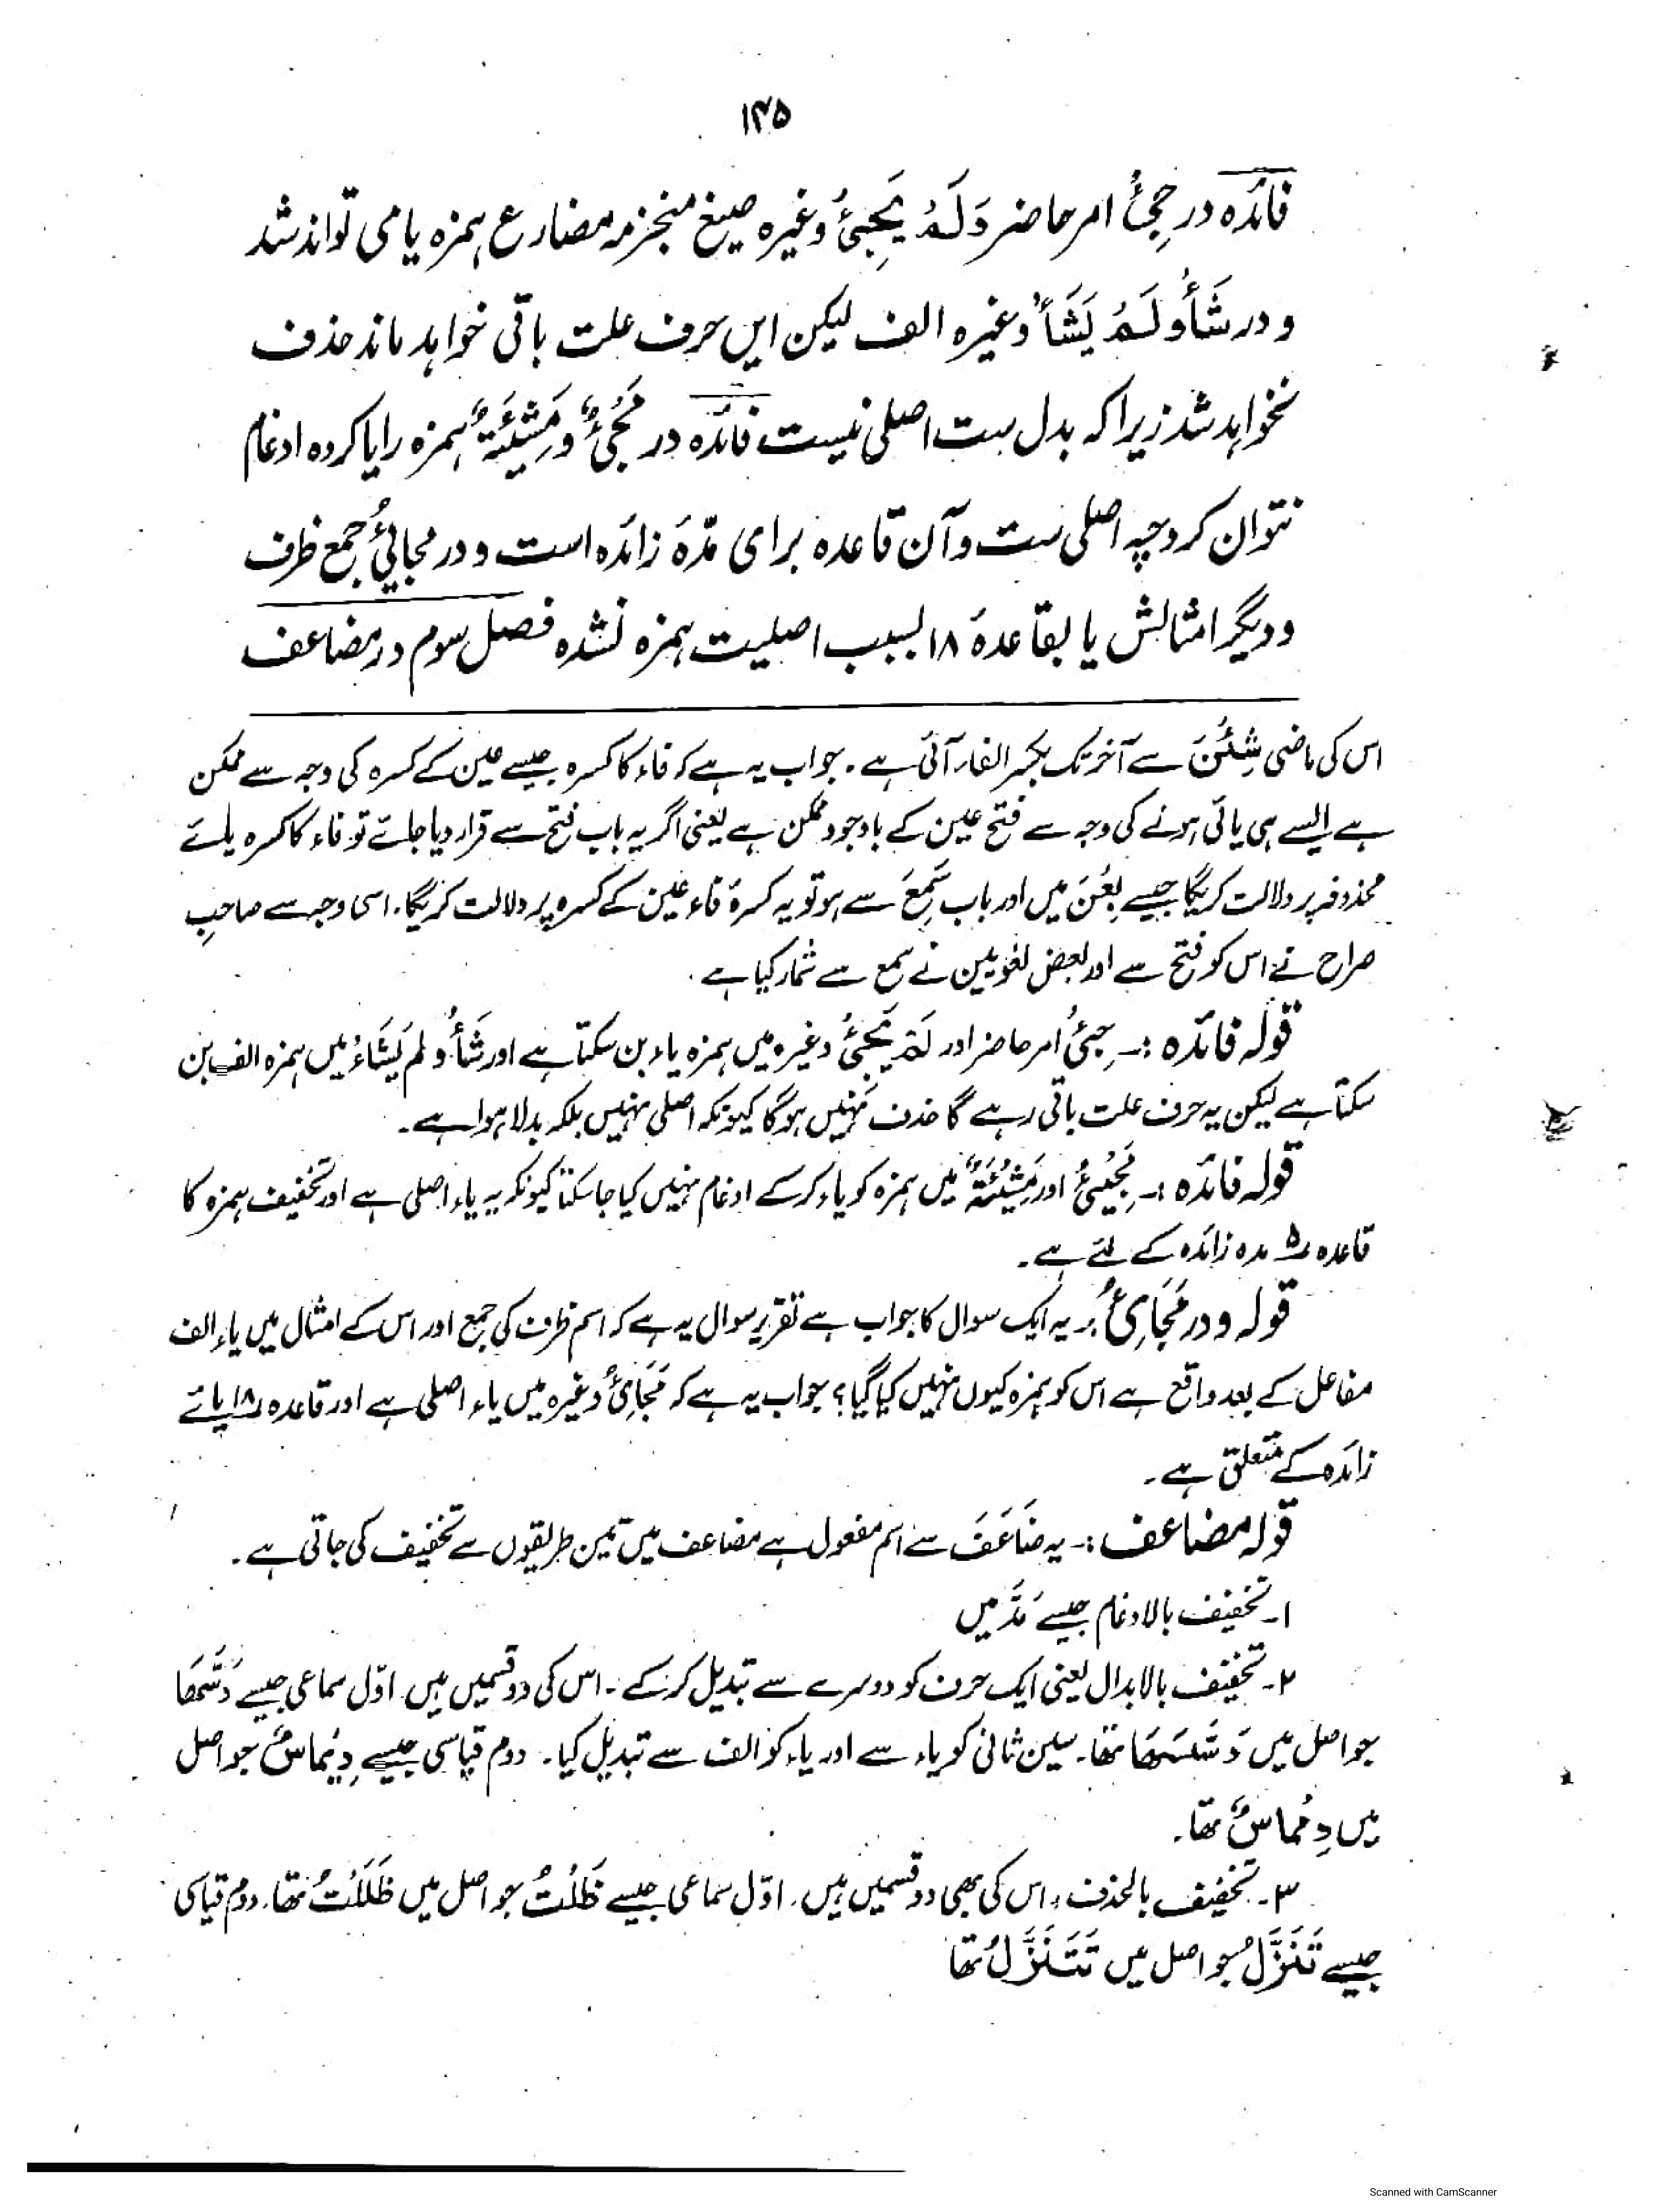 ۱۴۵
فائدہ در جِئْ امر حاضر وَلَمْ یَجِئْ وغیرہ صیغ منجزمہ مضارع ہمزہ یا می تواند شد
و در شَأْ و لَمْ یَشَأْ وغیرہ الف لیکن ایں حرف علت باقی خواہد ماند حذف
نخواہد شد زیراکہ بدل ست اصلی نیست فائدہ در مَجِیْءٌ و مَشِیْئَةٌ ہمزہ را یا کردہ ادغام
نتوان کرد چہ اصلی ست وآن قاعدہ برای مدّۂ زائدہ است و در مجائِیُٔ جمع ظرف
و دیگر امثالش یا بقاعدۂ ۱۸ بسبب اصلیت ہمزہ نشدہ فصل سوم در مضاعف
اس کی ماضی شِئْنَ سے آخر تک بکسر الفاء آئی ہے۔ جواب یہ ہے کہ فاء کا کسرہ جیسے عین کے کسرہ کی وجہ سے ممکن
ہے ایسے ہی یائی ہونے کی وجہ سے فتح عین کے باوجود ممکن ہے یعنی اگر یہ باب فتح سے قرار دیا جائے تو فاء کا کسرہ یائے
محذوفہ پر دلالت کریگا جیسے بِعْنَ میں اور باب سَمِعَ سے ہو تو یہ کسرۂ فاء عین کے کسرہ پر دلالت کریگا۔ اسی وجہ سے صاحبِ
صراح نے اس کو فتح سے اور بعض لغویین نے سمع سے شمار کیا ہے۔
قولہ فائدہ :۔ جِئْ امر حاضر اور لَمْ یَجِئْ وغیرہ میں ہمزہ یاء بن سکتا ہے اور شَأْ و لم یَشَاْءُ میں ہمزہ الف بن
سکتا ہے لیکن یہ حرف علت باقی رہے گا حذف نہیں ہوگا کیونکہ اصلی نہیں بلکہ بدلا ہوا ہے۔
قولہ فائدہ :۔ مَجِیْئُ اور مَشِیْئَةٌ میں ہمزہ کو یاء کرکے ادغام نہیں کیا جاسکتا کیونکہ یہ یاء اصلی ہے اور تخفیف ہمزہ کا
قاعدہ ۵ مدہ زائدہ کے لئے ہے۔
قولہ و در مَجَایِءُ :۔ یہ ایک سوال کا جواب ہے تقریرِ سوال یہ ہے کہ اسم ظرف کی جمع اور اس کے امثال میں یاء الف
مفاعل کے بعد واقع ہے اس کو ہمزہ کیوں نہیں کیا گیا؟ جواب یہ ہے کہ مَجَایِءُ وغیرہ میں یاء اصلی ہے اور قاعدہ ۱۸ یائے
زائدہ کے متعلق ہے۔
قولہ مضاعف :۔ یہ ضَاعَفَ سے اسم مفعول ہے مضاعف میں تین طریقوں سے تخفیف کی جاتی ہے۔
۱۔ تخفیف بالادغام جیسے مَدَّ میں
۲۔ تخفیف بالابدال یعنی ایک حرف کو دوسرے سے تبدیل کرکے۔ اس کی دو قسمیں ہیں۔ اوّل سماعی جیسے دَسّٰھَا
جو اصل میں دَسَّسَھَا تھا۔ سین ثانی کو یاء سے اور یاء کو الف سے تبدیل کیا۔ دوم قیاسی جیسے دِیْمَاسٌ جو اصل
میں دِمَّاسٌ تھا۔
۳۔ تخفیف بالحذف، اس کی بھی دو قسمیں ہیں۔ اوّل سماعی جیسے ظَلْتُ جو اصل میں ظَلَلْتُ تھا۔ دوم قیاسی
جیسے تَنَزَّلُ جو اصل میں تَتَنَزَّلُ تھا
Scanned with CamScanner